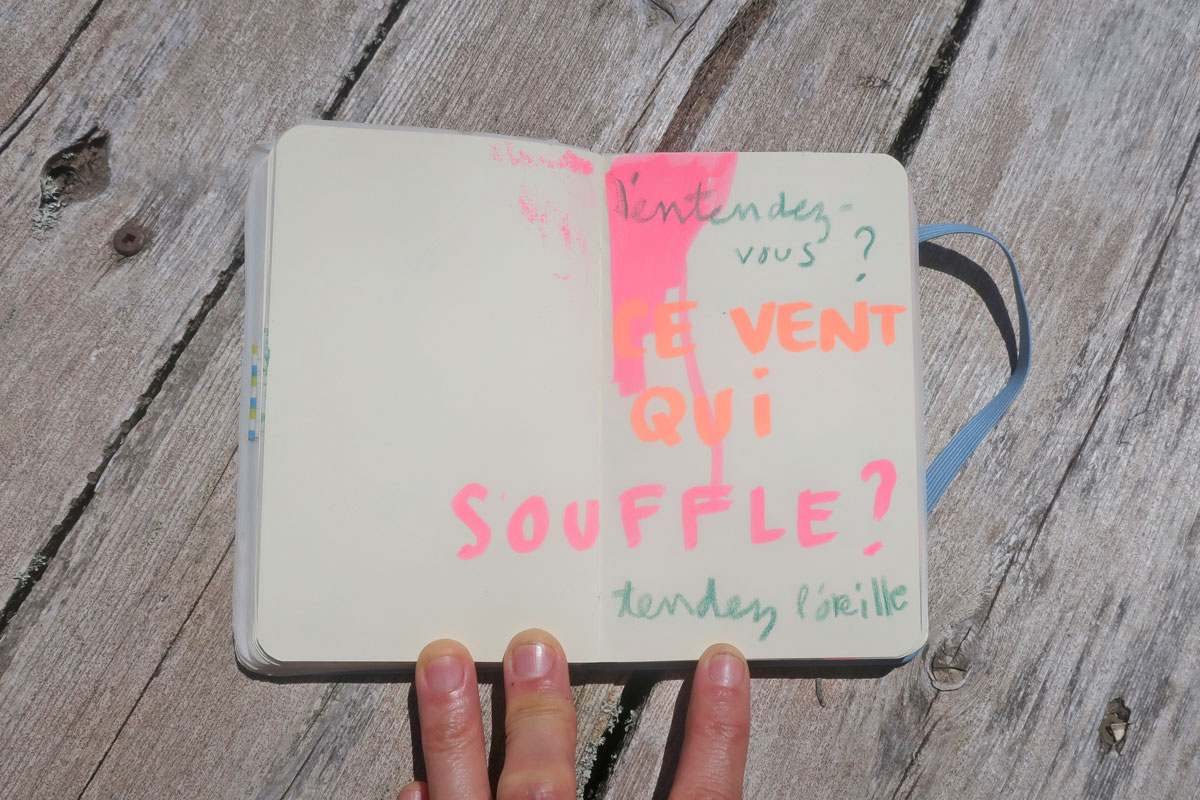 l'entendez-
vous ?
CE VENT
QUi
SOUFFLE?
tendez l'oreille